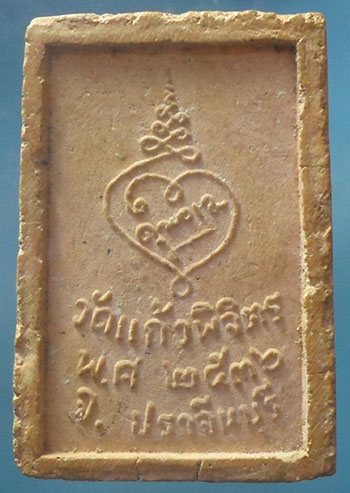 วัดแก้วพิจิตร
พ.ศ ๒๕๓๖
จ. ปราจีนบุรี